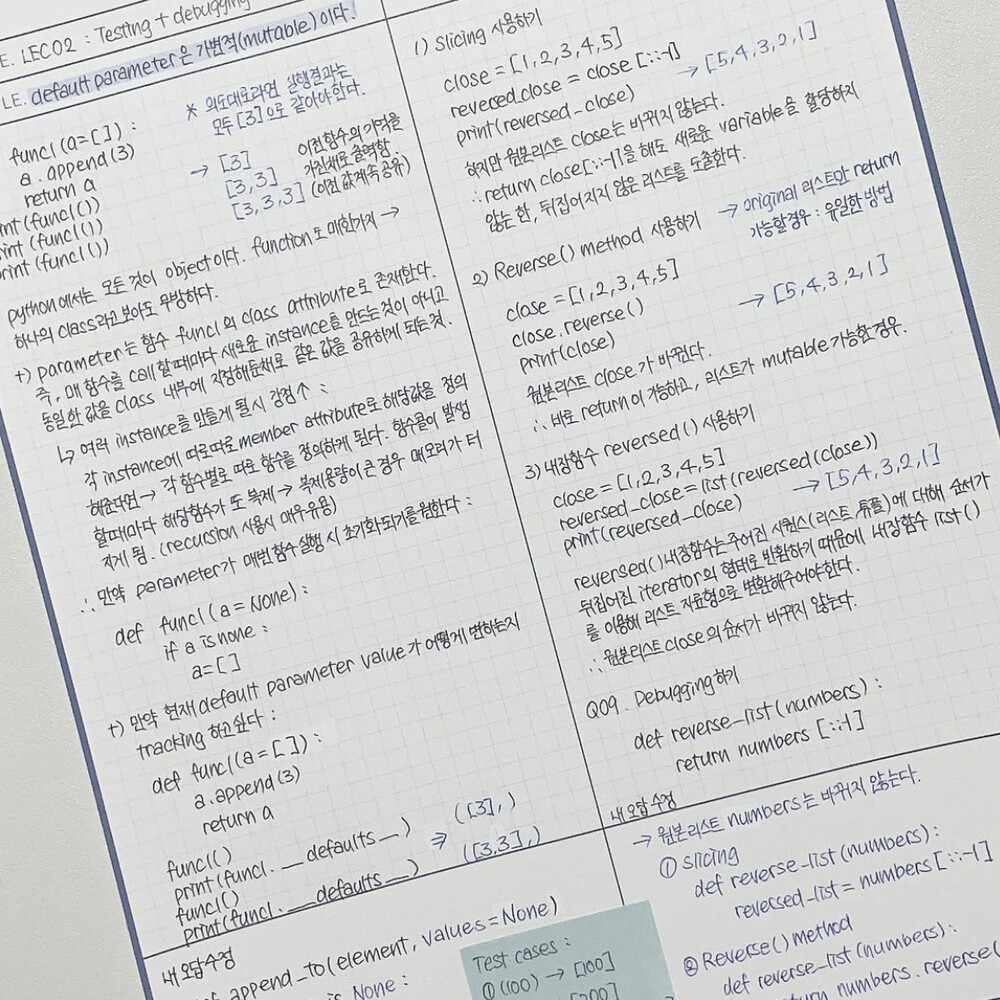 E. LEC02 : Testing + debugging
LE. default parameter은 가변적(mutable)이다.
func1(a=[]):
a.append(3)
return a
nt(func1())
int(func1())
rint(func1())
* 의도대로라면 실행결과는
모두 [3]으로 같아야한다.
→ [3]
[3,3]
[3,3,3]
이전함수의 기억을
가진채로 출력함.
(이전 값계속 공유)
python에서는 모든 것이 object이다. function도 매한가지 →
하나의 class라고 보아도 무방하다.
+) parameter는 함수 func1의 class attribute로 존재한다.
즉, 매 함수를 call 할때마다 새로운 instance를 만드는것이 아니고
동일한 값을 class 내부에 저장해둔채로 같은 값을 공유하게 되는것.
↳ 여러 instance를 만들게 될시 강점↑ :
각 instance에 따로따로 member attribute로 해당값을 정의
해준다면 → 각 함수별로 따로 함수를 정의하게 된다. 함수콜이 발생
할때마다 해당함수가 또 복제 → 복제용량이 큰 경우 메모리가 터
지게 됨. (recursion 사용시 매우유용)
∴ 만약 parameter가 매번 함수 실행 시 초기화되기를 원한다 :
def func1(a=None):
if a is none :
a=[]
+) 만약 현재 default parameter value가 어떻게 변하는지
tracking 하고싶다 :
def func1(a=[]):
a.append(3)
return a
func1()
print(func1.__defaults__)
func1()
print(func1.__defaults__)
⇒ ([3],)
([3,3],)
내 오답수정
append_to(element, values=None)
None :
Test cases :
① (100) → [100]
[200]
1) Slicing 사용하기
close = [1,2,3,4,5]
revered_close = close[::-1]
print(reversed_close)
→ [5,4,3,2,1]
하지만 원본리스트 close는 바뀌지 않는다.
∴ return close[::-1]을 해도 새로운 variable을 할당하지
않는 한, 뒤집어지지 않은 리스트를 도출한다.
2) Reverse() method 사용하기
→ original 리스트만 return
가능할경우 : 유일한 방법
close = [1,2,3,4,5]
close.reverse()
print(close)
→ [5,4,3,2,1]
원본리스트 close가 바뀐다.
∴ 바로 return이 가능하고, 리스트가 mutable 가능한 경우.
3) 내장함수 reversed() 사용하기
close = [1,2,3,4,5]
reversed_close = list(reversed(close))
print(reversed_close)
→ [5,4,3,2,1]
reversed() 내장함수는 주어진 시퀀스(리스트,튜플)에 대해 순서가
뒤집어진 iterator의 형태로 반환하기 때문에 내장함수 list()
를 이용해 리스트 자료형으로 변환해주어야한다.
∴ 원본리스트 close의 순서가 바뀌지 않는다.
Q09. Debugging하기
def reverse_list(numbers):
return numbers[::-1]
내 오답 수정
→ 원본리스트 numbers는 바뀌지 않는다.
① slicing
def reverse_list(numbers):
reversed_list = numbers[::-1]
② Reverse() method
def reverse_list(numbers):
return numbers.reverse(